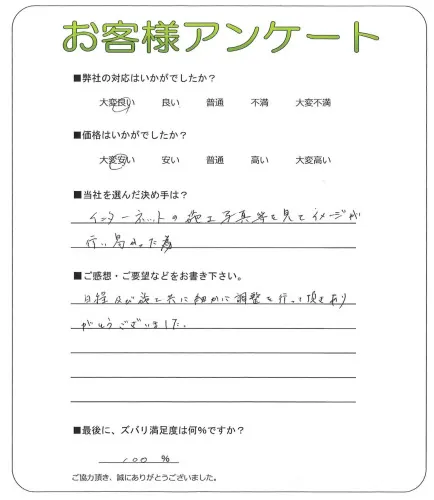 お客様アンケート
■弊社の対応はいかがでしたか？
大変良い 良い 普通 不満 大変不満
■価格はいかがでしたか？
大変安い 安い 普通 高い 大変高い
■当社を選んだ決め手は？
インターネットの施工写真等を見てイメージが
行い易かった為
■ご感想・ご要望などをお書き下さい。
日程及び施工共に細かに調整を行って頂きあり
がとうございました。
■最後に、ズバリ満足度は何％ですか？
100 %
ご協力頂き、誠にありがとうございました。